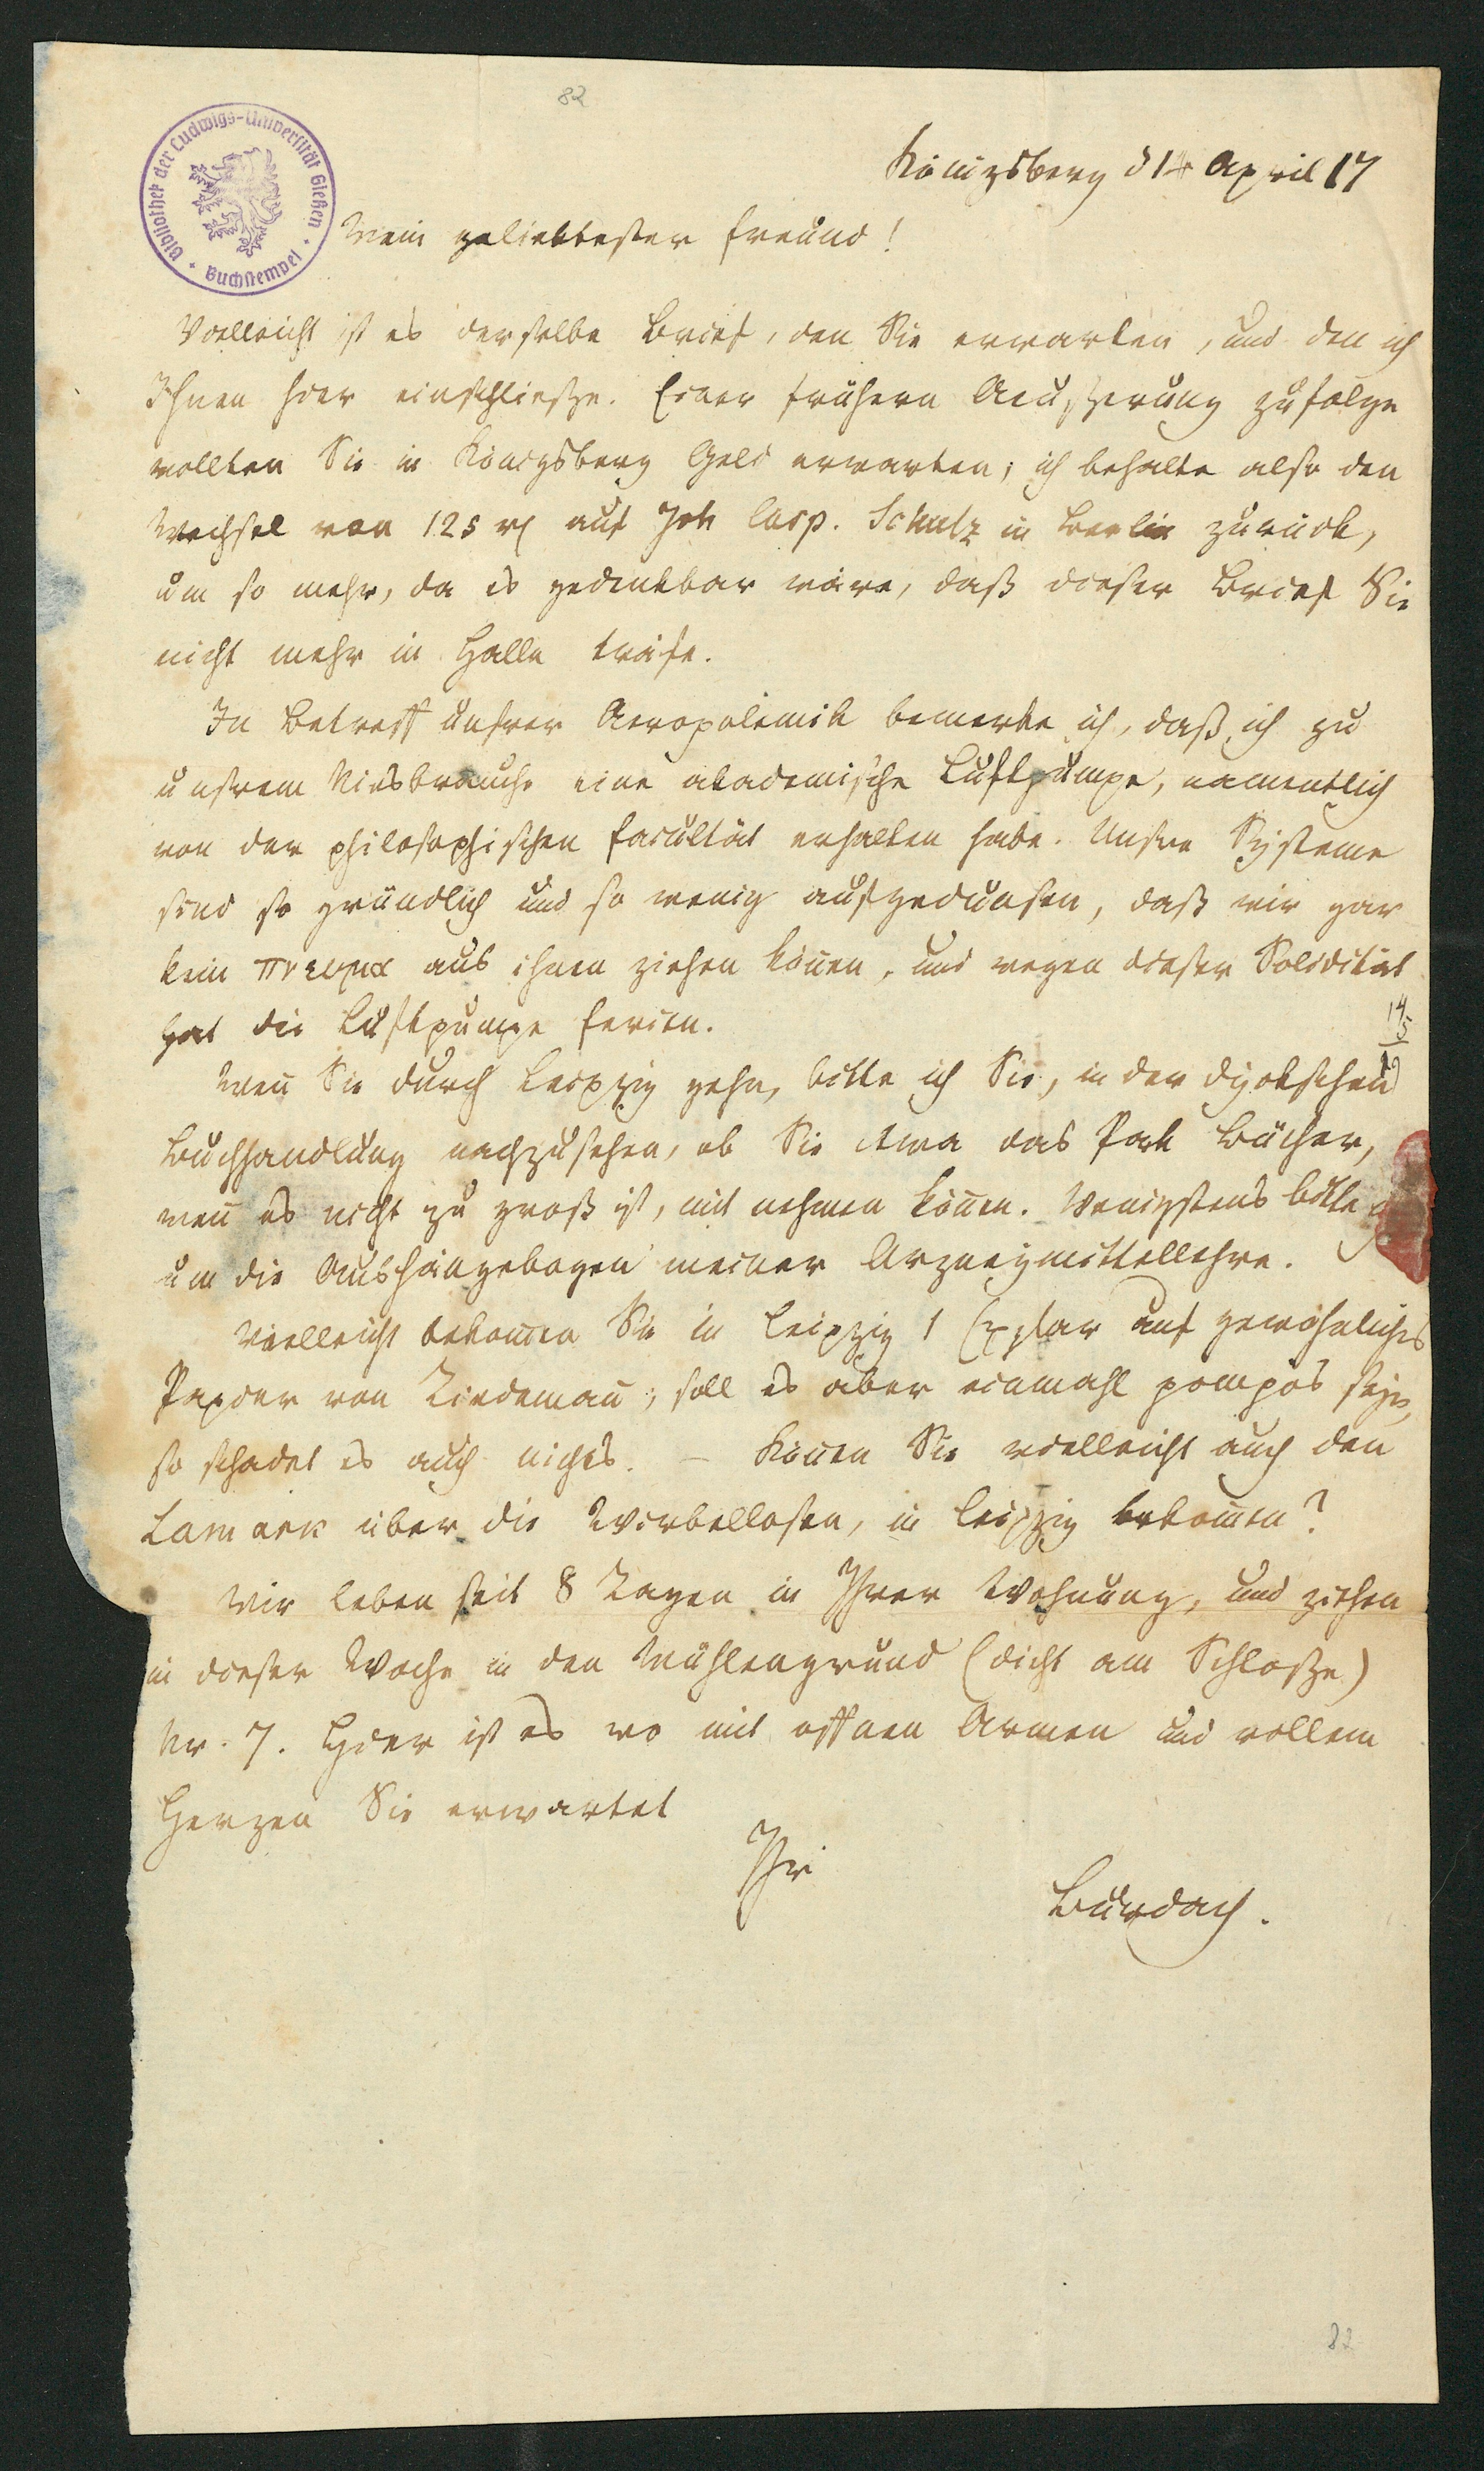 82
Bibliothek der Ludwigs-Universität Gießen · Buchstempel ·
Königsberg d 14 April 17
Mein geliebtester Freund!
Vielleicht ist es derselbe Brief, den Sie erwarten, und den ich
Ihnen hier einschließe. Einer frühern Aeußerung zufolge
wollten Sie in Königsberg Geld erwarten; ich behalte also den
Wechsel von 125 rl auf Joh Casp. Schulz in Berlin zurück,
um so mehr, da es gedenkbar wäre, daß dieser Brief Sie
nicht mehr in Halle träfe.
In Betreff unsrer Aeropolemik bemerke ich, daß ich zu
unsrem Niesbrauche eine akademische Luftpumpe, namentlich
von der philosophischen Facultät erhalten habe. Unsre Systeme
sind so gründlich und so wenig aufgedunsen, daß wir gar
kein πνευμα aus ihnen ziehen können, und wegen dieser Solidität
hat die Luftpumpe Ferien.
14
5
19
Wenn Sie durch Leipzig gehn, bitte ich Sie, in der Dykschen
Buchhandlung nachzusehen, ob Sie etwa das Pack Bücher,
wenn es nicht zu groß ist, mit nehmen können. Wenigstens bitte
um die Aushängebogen meiner Arzneymittellehre.
Vielleicht bekommen Sie in Leipzig 1 Explar auf gewöhnliches
Papier von Tiedemann; soll es aber einmahl pompös seyn,
so schadet es auch nichts. – Können Sie vielleicht auch den
Lamark über die Wirbellosen, in Leipzig bekommen?
Wir leben seit 8 Tagen in Ihrer Wohnung, und ziehen
in dieser Woche in den Mühlengrund (dicht am Schloße)
Nr. 7. Hier ist es wo mit offnen Armen und vollem
Herzen Sie erwartet
Ihr
Burdach.
82